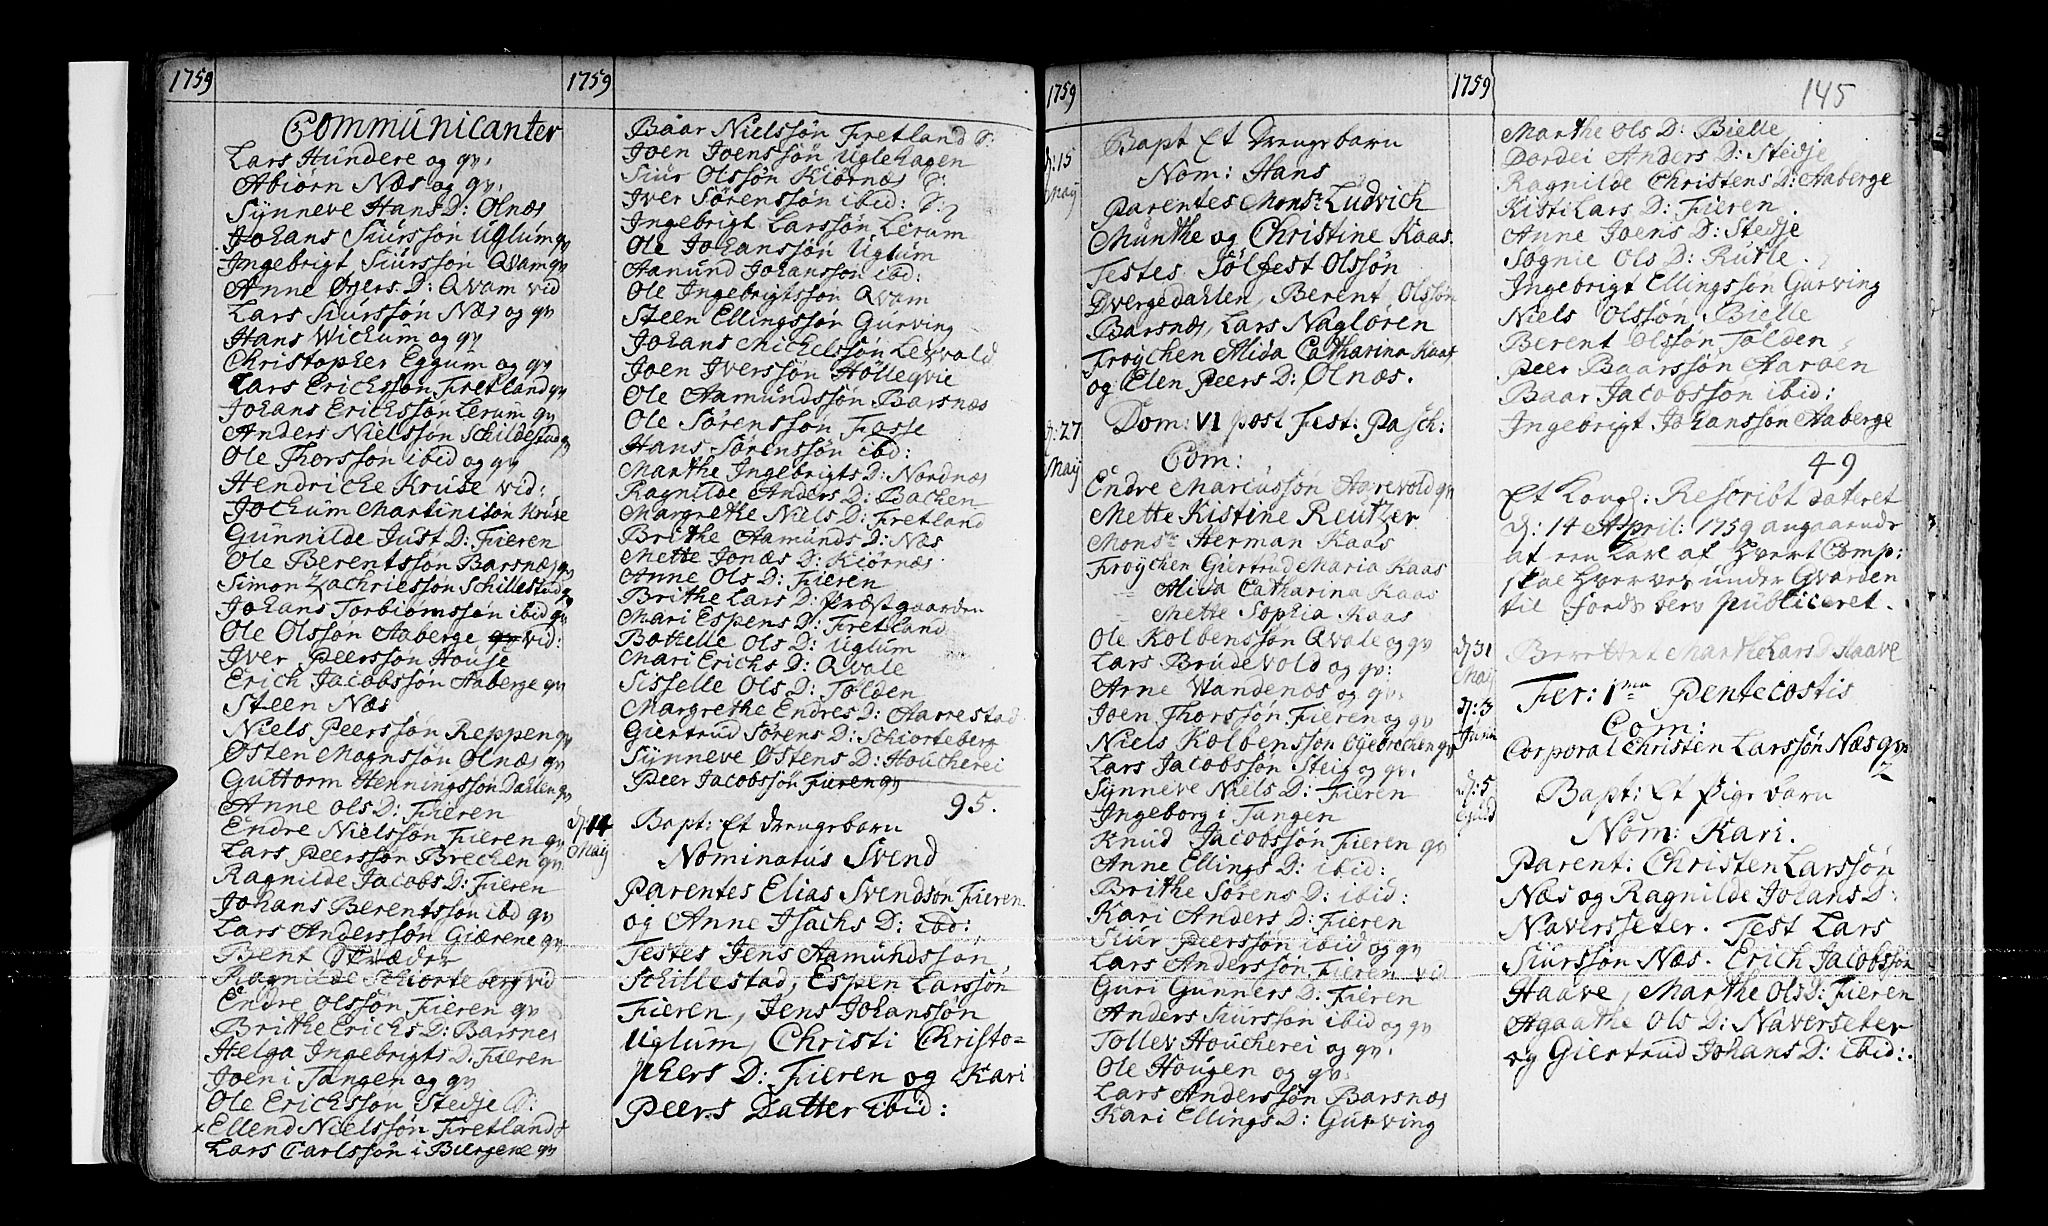 1759
Communicanter
Lars Hundere og qv:
Abiørn Næs og qv:
Sÿnneve Hans D: Olnæs
Johans Siurssøn Uglum qv
Ingebrigt Siurssøn Qvam qv
Anne Øyers D: Qvam vid
Lars Siurssøn Næs og qv
Hans Wichum og qv
Christopher Eggum og qv
Lars Ericssøn Fretland qv
Johans Ericssøn Lerum qv
Anders Nielssøn Schildestad qv
Ole Thorssøn ibid og qv
Hendriche Kruse vid:
Jochum Martinison Kruse
Gunnilde Just D: Fieren
Ole Berentssøn Barsnæs qv
Simon Zachriessøn Schillestad qv
Johans Torbiørnssøn ibid qv
Ole Olssøn Aaberge qv vid:
Iver Peerssøn House
Erich Jacobssøn Aaberge qv
Steen Næs
Niels Peerssøn Reppen qv
Østen Magnssøn Olnæs qv
Guttorm Henningssøn Dahlen qv
Anne Ols D: Fieren
Endre Nielssøn Fieren qv
Lars Peerssøn Brechen qv
Ragnilde Jacobs D: Fieren
Johans Berentssøn ibd qv
Lars Anderssøn Giærene qv
Bent Skræder
Ragnilde Schiorteberg vid
Endre Olssøn Fieren qv
Brithe Erichs D: Barsnes
Helga Ingebrigts D: Fieren
Joen i Tangen og qv
Ole Ericksson Stedje S:
× Ellend Nielssøn Fretland
Lars Carlssøn i Biergene qv
1759
Baar Nielssøn Fretland S:
Joen Joenssøn Uglehagen
Siur Olssøn Kiørnæs S:
Iver Sørenssøn ibid: S:
Ingebrigt Larssøn Lerum
Ole Johanssøn Uglum
Aamund Johanssøn ibid:
Ole Ingebrigtssøn Qvam
Steen Ellingssøn Gurving
Johans Michelssøn Lervold
Joen Iverssøn Hølleqvie
Ole Aamundssøn Barsnæs
Ole Sørenssøn Fosse
Hans Sørenssøn ibd:
Marthe Ingebrigts D: Nordnæs
Ragnilde Anders D: Bachen
Margrethe Niels D: Fretland
Brithe Aamunds D: Næs
Mette Jonæs D: Kiørnæs
Anne Ols D: Fieren
Brithe Lars D: Præstgaarden
Mari Espens D: Fretland
Bottelle Ols D: Uglum
Mari Erichs D: Qvale
Sisselle Ols D: Tølden
Margrethe Endres D: Aarrestad
Giertrud Sørens D: Schiorteberg
Sÿnneve Østens D: Houcherei
Peer Jacobssøn Fieren qv
95.
d: 14 Maij
Bapt: Et drengebarn
Nominatus Svend
Parentes Elias Svendson Fieren
og Anne Isachs D: ibd:
Testes Jens Aamundssøn
Schillestad, Espen Larssøn
Fieren, Jens Johanssøn
Uglum, Christi Christo=
phers D: Fieren og Kari
Peers Datter ibid:
1759
d: 15 Maij
Bapt Et drengebarn
Nom: Hans
Parentes Monsr Ludvich
Munthe og Christine Kaas.
Testes Sølfest Olssøn
Dvergedahlen, Berent Olssøn
Barsnæs, Lars Nagløren
Frøychen Alida Catharina Kaas
og Elen Peers D: Olnæs.
d: 27 Maij
Dom: VI post Fest: Pasch:
Com:
Endre Mariusson Aarevold qv
Mette Kistine Reutzer
Monsr Herman Kaas
Frøychen Giertrud Maria Kaas
Alida Catharina Kaas
Mette Sophia Kaas
Ole Kolbenssøn Qvale og qv
Lars Brudevold og qv:
Arne Wandenæs og qv:
Joen Thorssøn Fieren og qv
Niels Kolbenssøn Øyebrechen qv
Lars Jacobssøn Steig og qv.
Sÿnneve Niels D: Fieren
Ingeborg i Tangen
Knud Jacobssøn Fieren qv
Anne Ellings D: ibid:
Brithe Sørens D: ibid:
Kari Anders D: Fieren
Siur Peerssøn ibid og qv
Lars Anderssøn Fieren vid
Guri Gunners D: Fieren
Anders Siurssøn ibid og qv
Tollev Houcherei og qv.
Ole Hougen og qv:
Lars Anderssøn Barsnæs
Kari Ellings D: Gurving
1759
145
Marthe Ols D: Bielle
Dordei Anders D: Stedje
Ragnilde Christens D: Aaberge
Kisti Lars D: Fieren.
Anne Joens D: Stedje
Søgnie Ols D: Rutle.
Ingebrigt Ellingssøn Gurving
Niels Olssøn Bielle
Berent Olssøn Tølden
Peer Baarssøn Aaroen
Baar Jacobssøn ibid:
Ingebrigt Johanssøn Aaberge
49
Et Kongl: Rescript dateret
d: 14 April: 1759 angaaende
at een Karl af hvert Comp:
skal hverves under Gvarden
til fods bev publiceret.
d 31 Maij
Berettet Marthe Lars D Haave
d: 3 Junii
Fer: 1ma Pentecostis
Com:
Corporal Christen Larssøn Næs qv
2
d: 5
Bapt: Et Pige barn
Nom: Kari.
Parent: Christen Larssøn
Næs og Ragnilde Johans D:
Naversseter. Test Lars
Siurssøn Næs. Erich Jacobssøn
Haave, Marthe Ols D: Fieren
Agaathe Ols D: Naverseter
og Giertrud Johans D: ibid:.